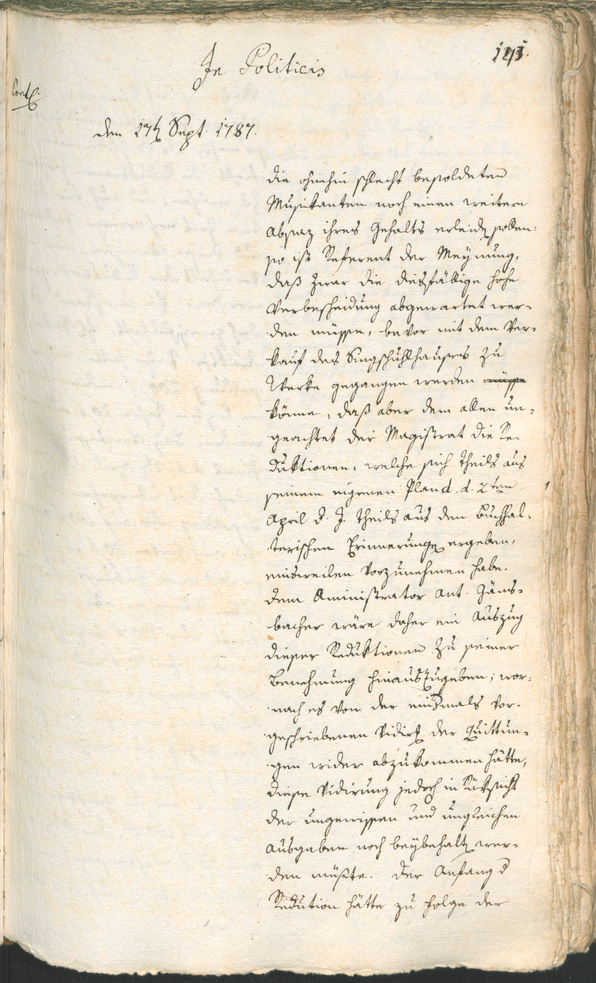 In Politicis
191.
Cont.
den 17t Sept. 1787.
die ohnehin schlecht besoldeten
Musikanten noch einen weitern
Absaz ihres Gehalts erleiden sollen:
so ist Referent der Meynung,
daß zwar die diesfällige hohe
Verbescheidung abgewartet wer-
den müsse, bevor mit dem Ver-
kauf des Singschuhlhauses zu
Werke gegangen werden müsse
könne, daß aber dem allen un-
geachtet der Magistrat die Re-
duktionen, welche sich theils aus
seinem eigenen Plan d. d. 2ten
April d. J. theils aus den Buchhal-
terischen Erinnerungen ergeben,
einsweilen vorzunehmen habe.
Dem Aministrator Ant. Gäns-
bacher wäre daher ein Auszug
dieser Reduktionen zu seiner
Benehmung hinauszugeben; wor-
nach es von der einsmals vor-
geschriebenen Vidirung der Quittun-
gen wider abzukommen hätte,
diese Vidirung jedoch in Rüksicht
der ungewissen und ungleichen
Ausgaben noch beybehalten wer-
den müßte. Der Anfang d
Redution hätte zu Folge der